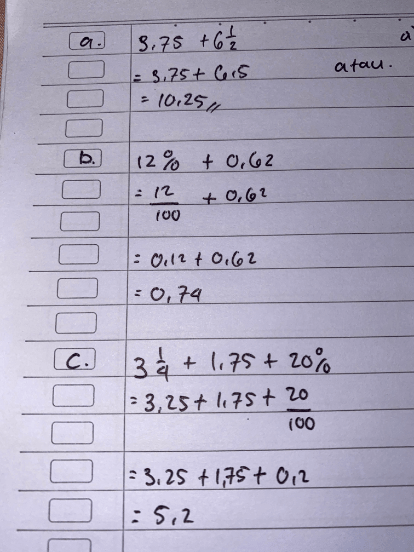 a. 3,75 + 6 1/2
= 3,75 + 6,5 atau.
= 10,25 //
b. 12% + 0,62
= 12/100 + 0,62
= 0,12 + 0,62
= 0,74
c. 3 1/4 + 1,75 + 20%
= 3,25 + 1,75 + 20/100
= 3,25 + 1,75 + 0,2
= 5,2